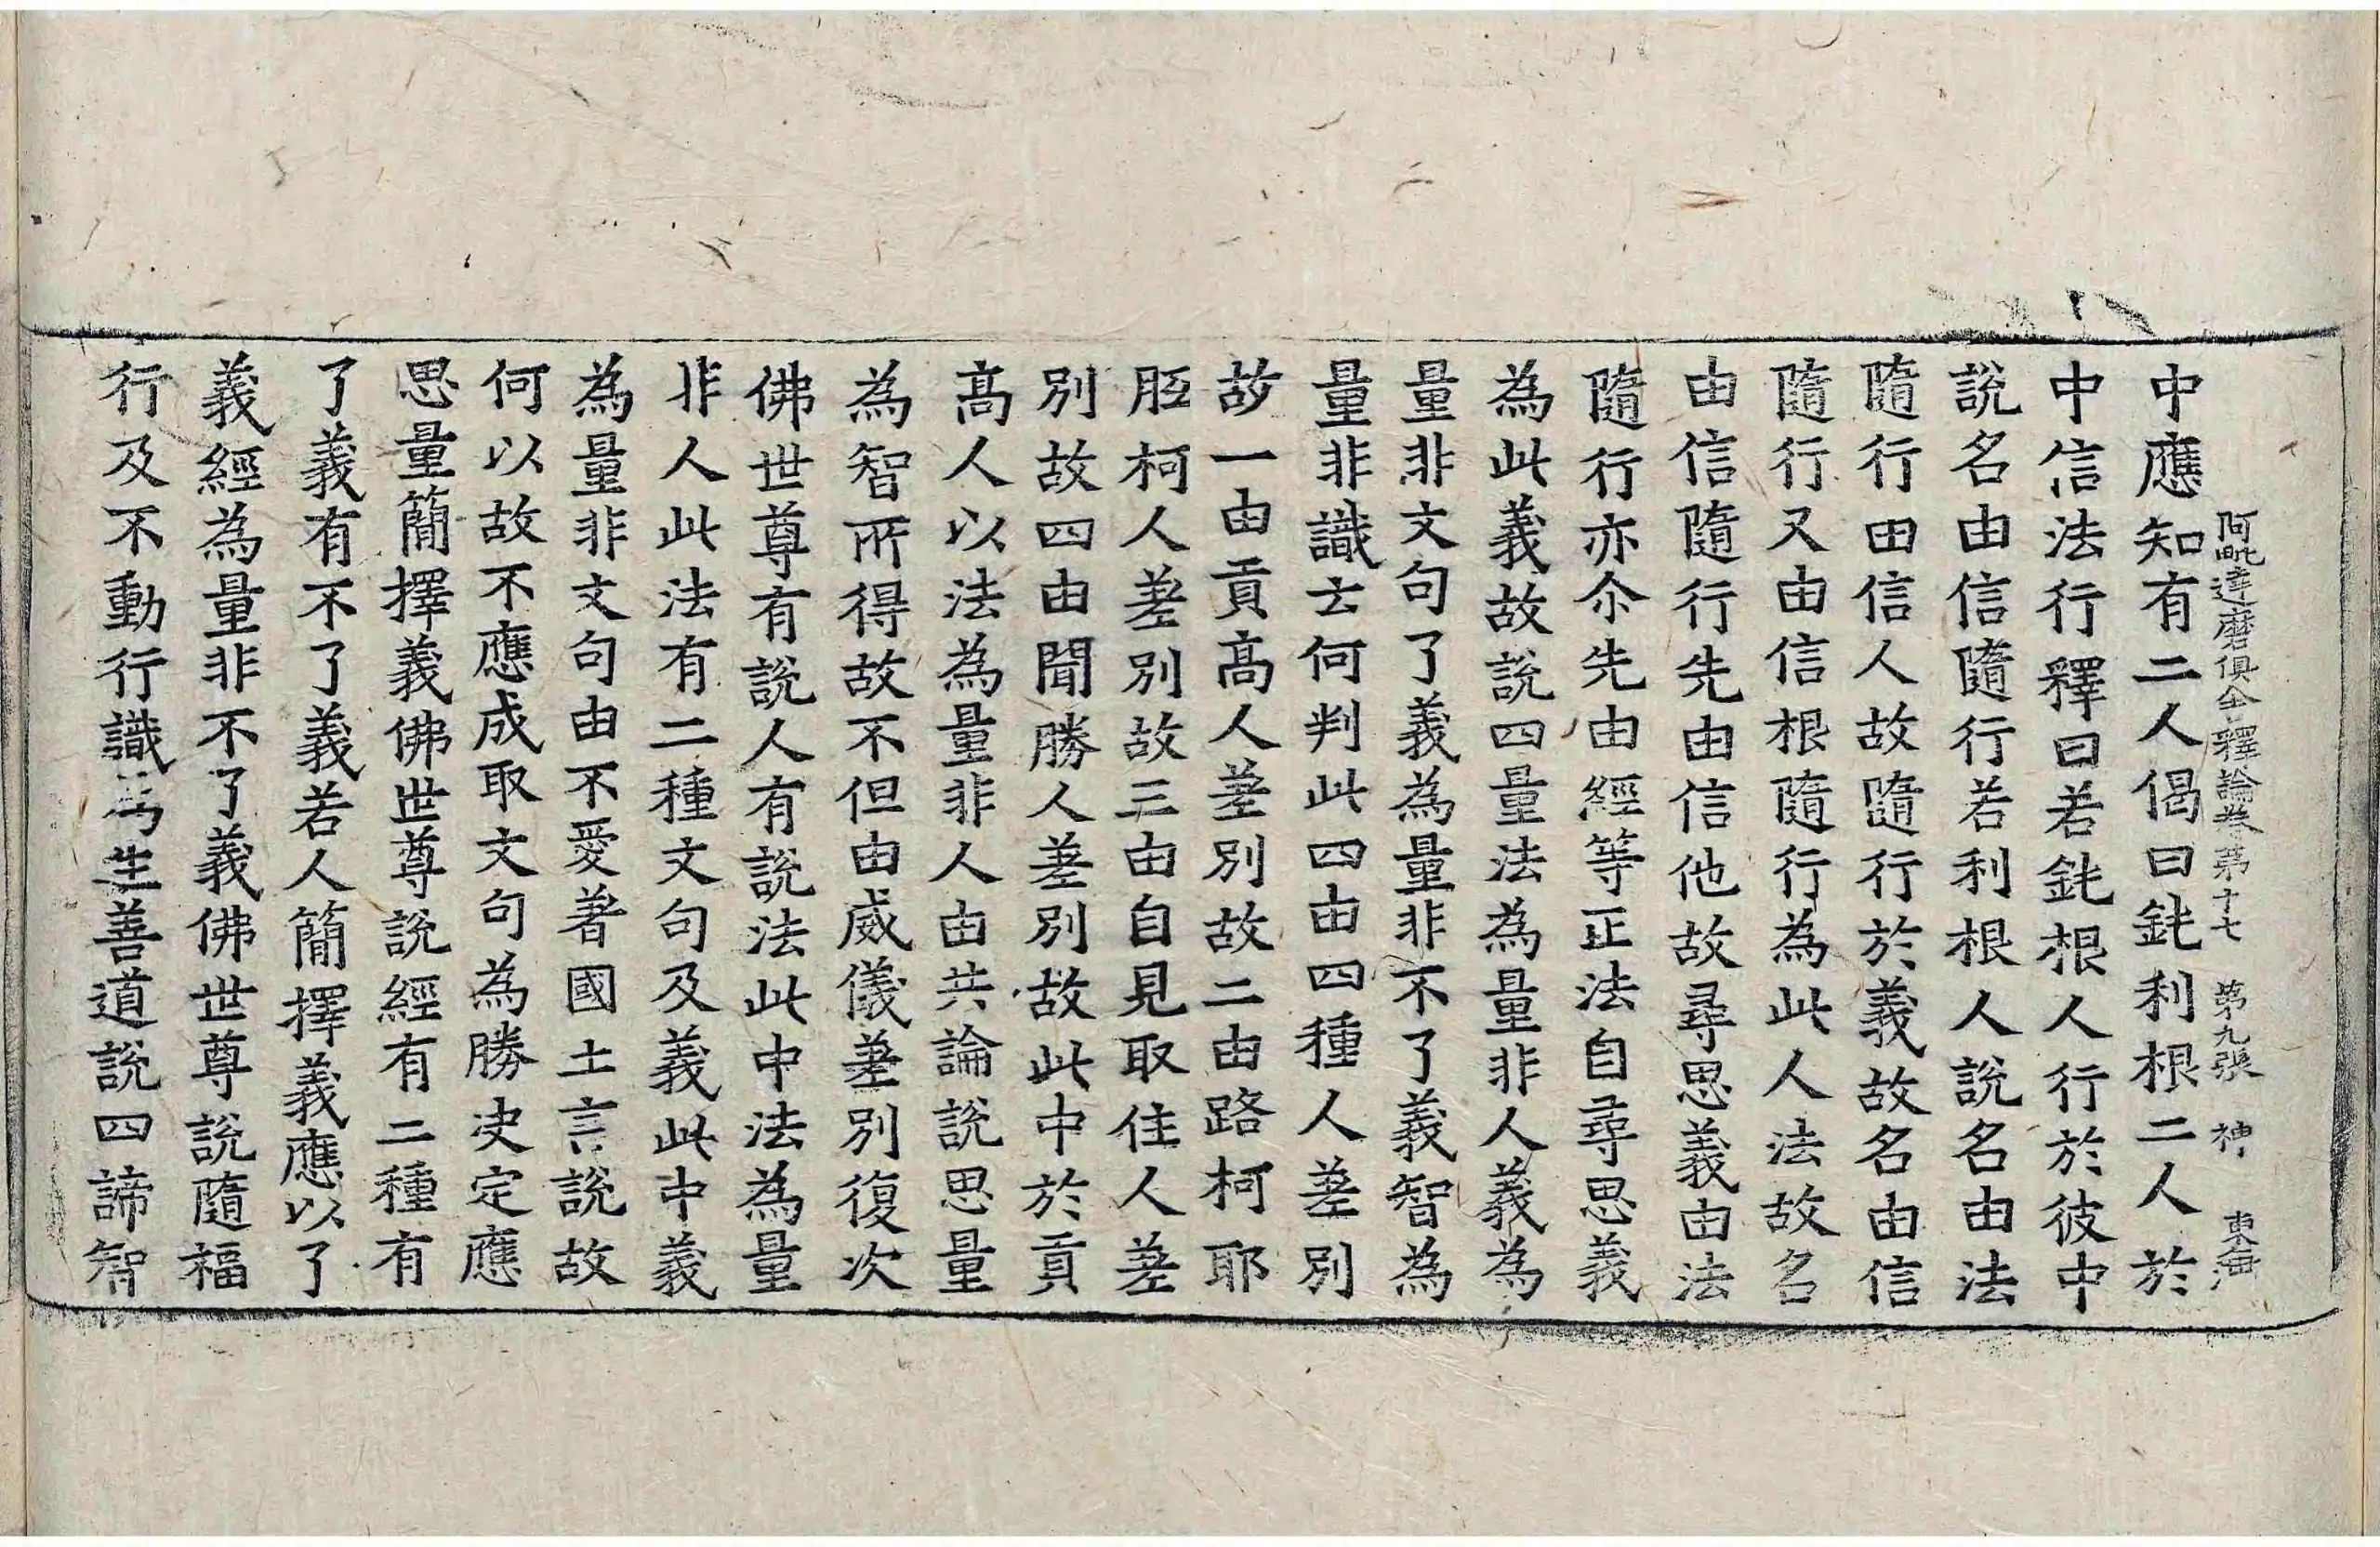 阿毗達磨俱舍釋論卷第十七　第九張　神　東海
中應知有二人偈曰鈍利根二人於
中信法行釋曰若鈍根人行於彼中
說名由信隨行若利根人說名由法
隨行由信人故隨行於義故名由信
隨行又由信根隨行為此人法故名
由信隨行先由信他故尋思義由法
隨行亦尒先由經等正法自尋思義
為此義故說四量法為量非人義為
量非文句了義為量非不了義智為
量非識云何判此四由四種人差別
故一由貢高人差別故二由路柯耶
胝柯人差別故三由自見取住人差
別故四由聞勝人差別故此中於貢
高人以法為量非人由共論說思量
為智所得故不但由威儀差別復次
佛世尊有說人有說法此中法為量
非人此法有二種文句及義此中義
為量非文句由不愛著國土言說故
何以故不應成取文句為勝决定應
思量簡擇義佛世尊說經有二種有
了義有不了義若人簡擇義應以了
義經為量非不了義佛世尊說隨福
行及不動行識為生善道說四諦智